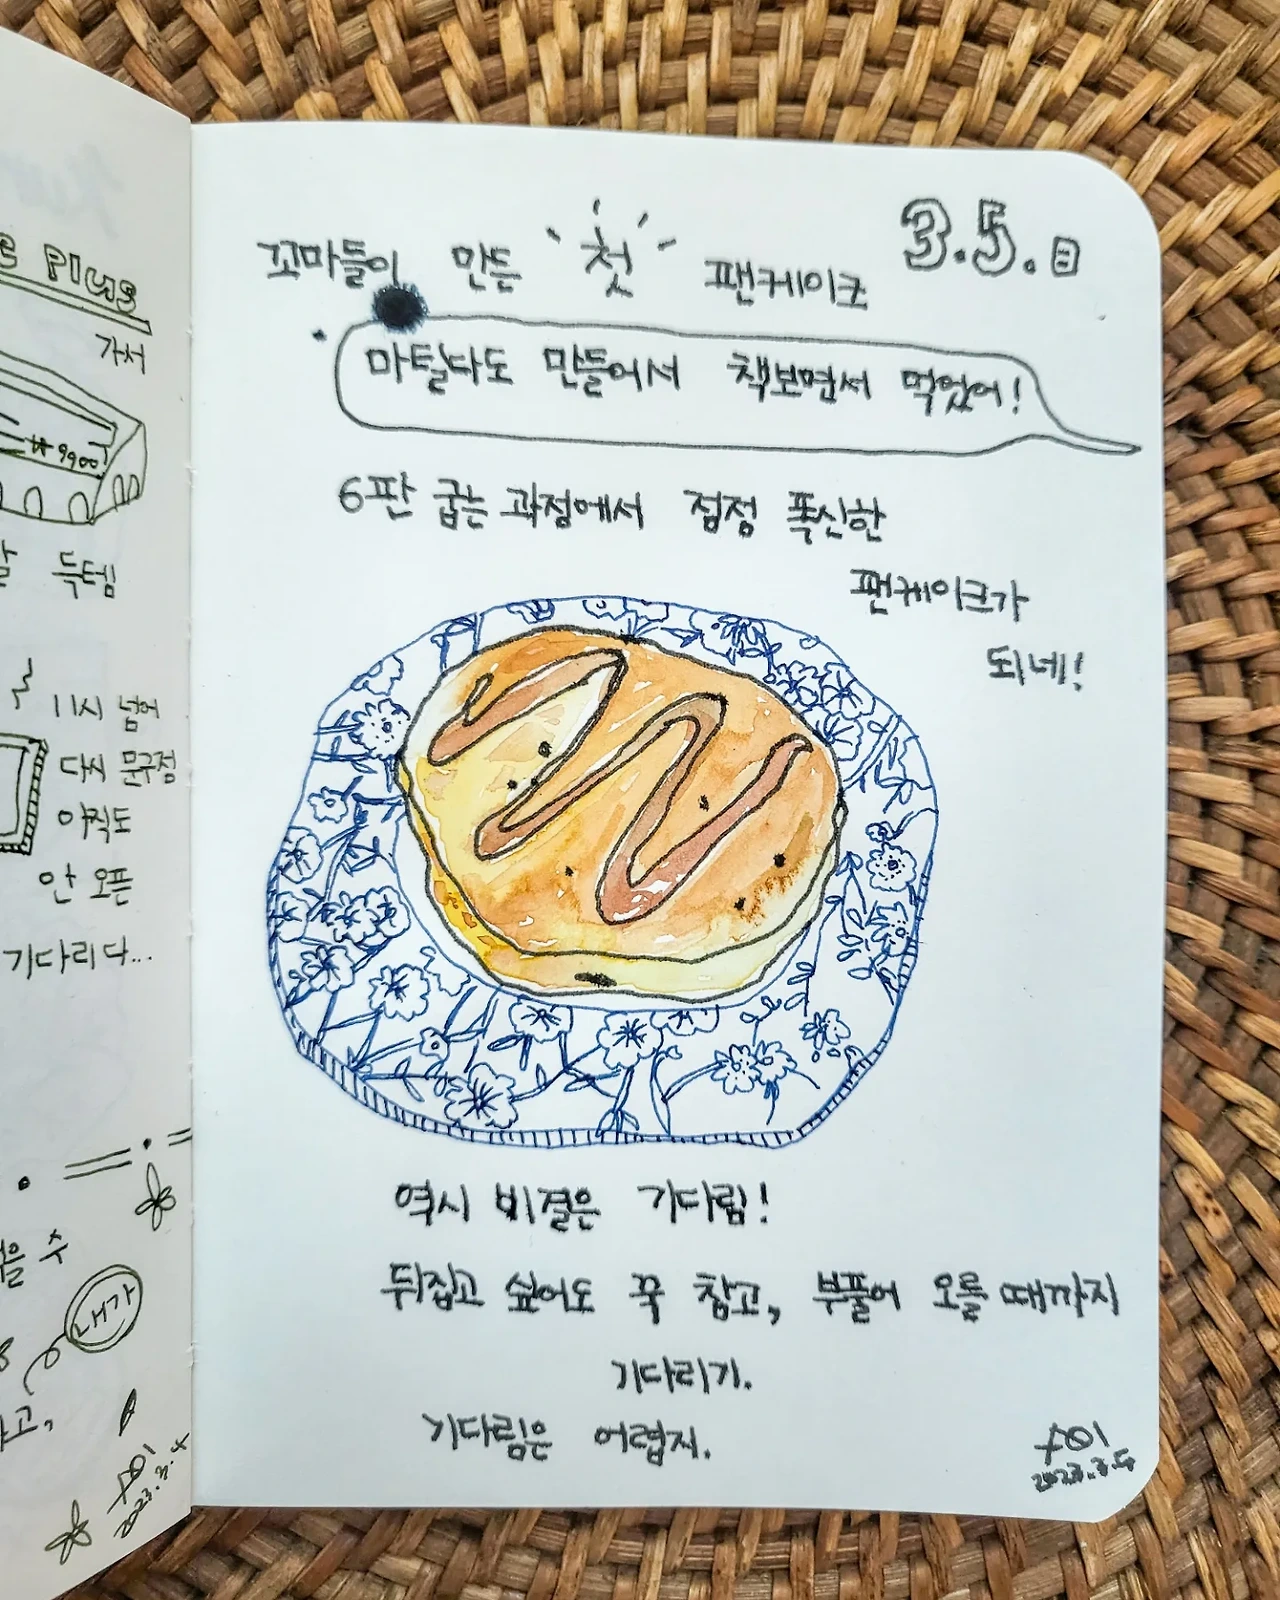 C PIUS
가서
₩9900
득템
11시 넘어
다시 문구점
아직도
안 오픈
기다리다...
수
내가
고,
2023.3.4
3.5.日
꼬마들이 만든 첫 팬케이크
마틸다도 만들어서 책보면서 먹었어!
6판 굽는 과정에서 점점 폭신한
팬케이크가
되네!
역시 비결은 기다림!
뒤집고 싶어도 꾹 참고, 부풀어 오를 때까지
기다리기.
기다림은 어렵지.
2023.3.5